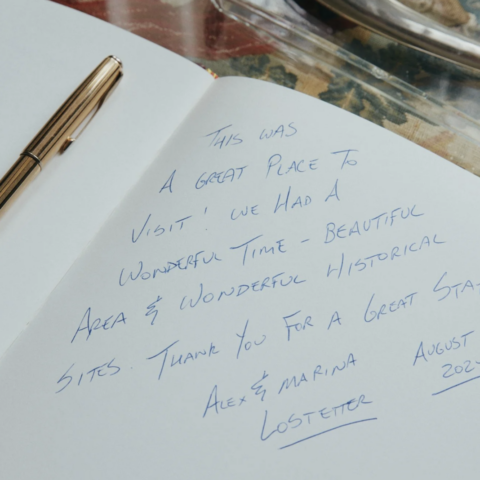 THIS WAS
A GREAT PLACE TO
VISIT! WE HAD A
WONDERFUL TIME - BEAUTIFUL
AREA & WONDERFUL HISTORICAL
SITES. THANK YOU FOR A GREAT STA
ALEX & MARINA
LOSTETTER
AUGUST
202